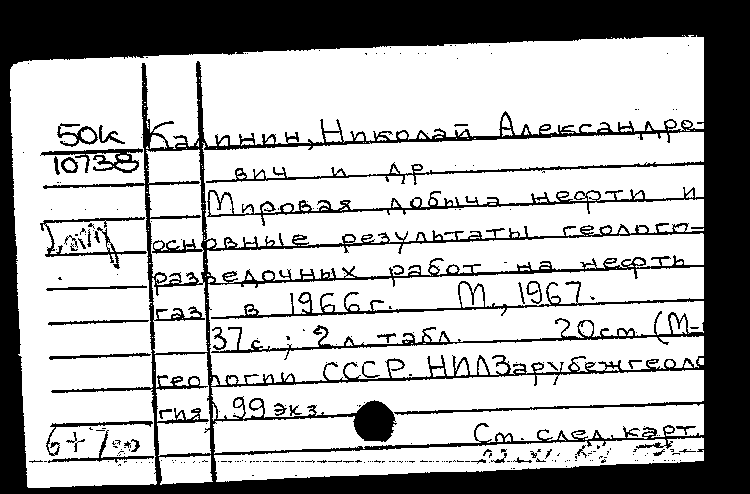 50к Калинин, Николай Александро-
10738
вич и др.
Мировая добыча нефти и
основные результаты геолого=
разведочных работ на нефть
газ в 1966г. М., 1967.
37с.; 2л. табл. 20см. (М-
геологии СССР. НИЛЗарубежгеоло
гия). 99 экз.
6+7
См. след. карт.